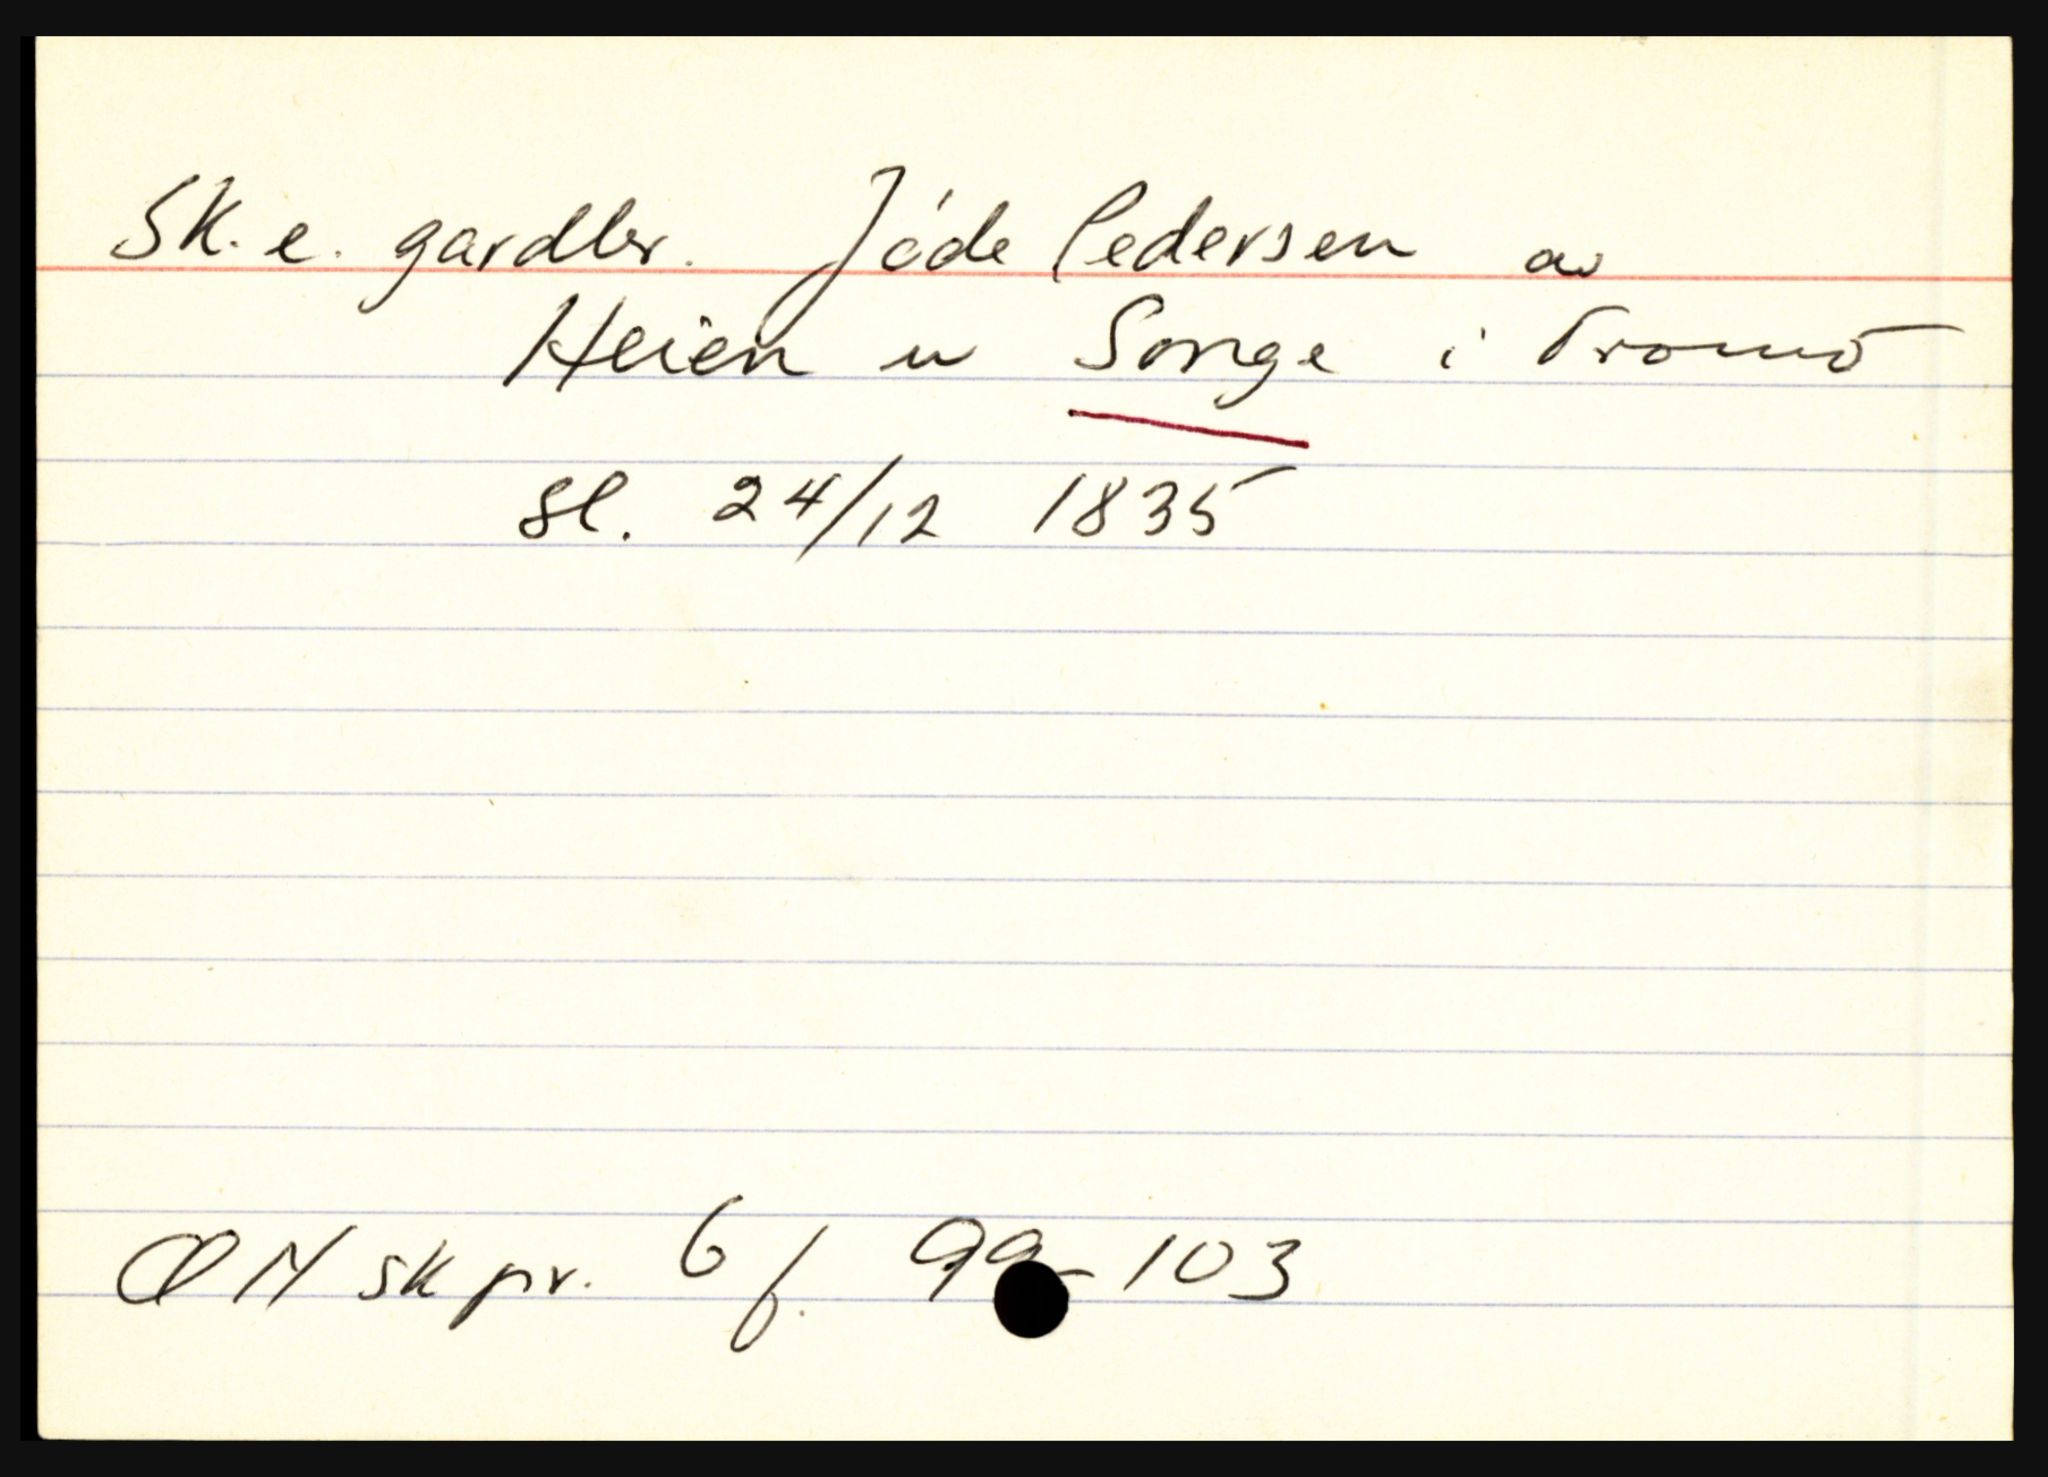 Sk. e. gardbr. Jóde Pedersen av
Heien u Songe i Tromø
sl. 24/12 1835
ØN sk pr. 6 f. 99-103